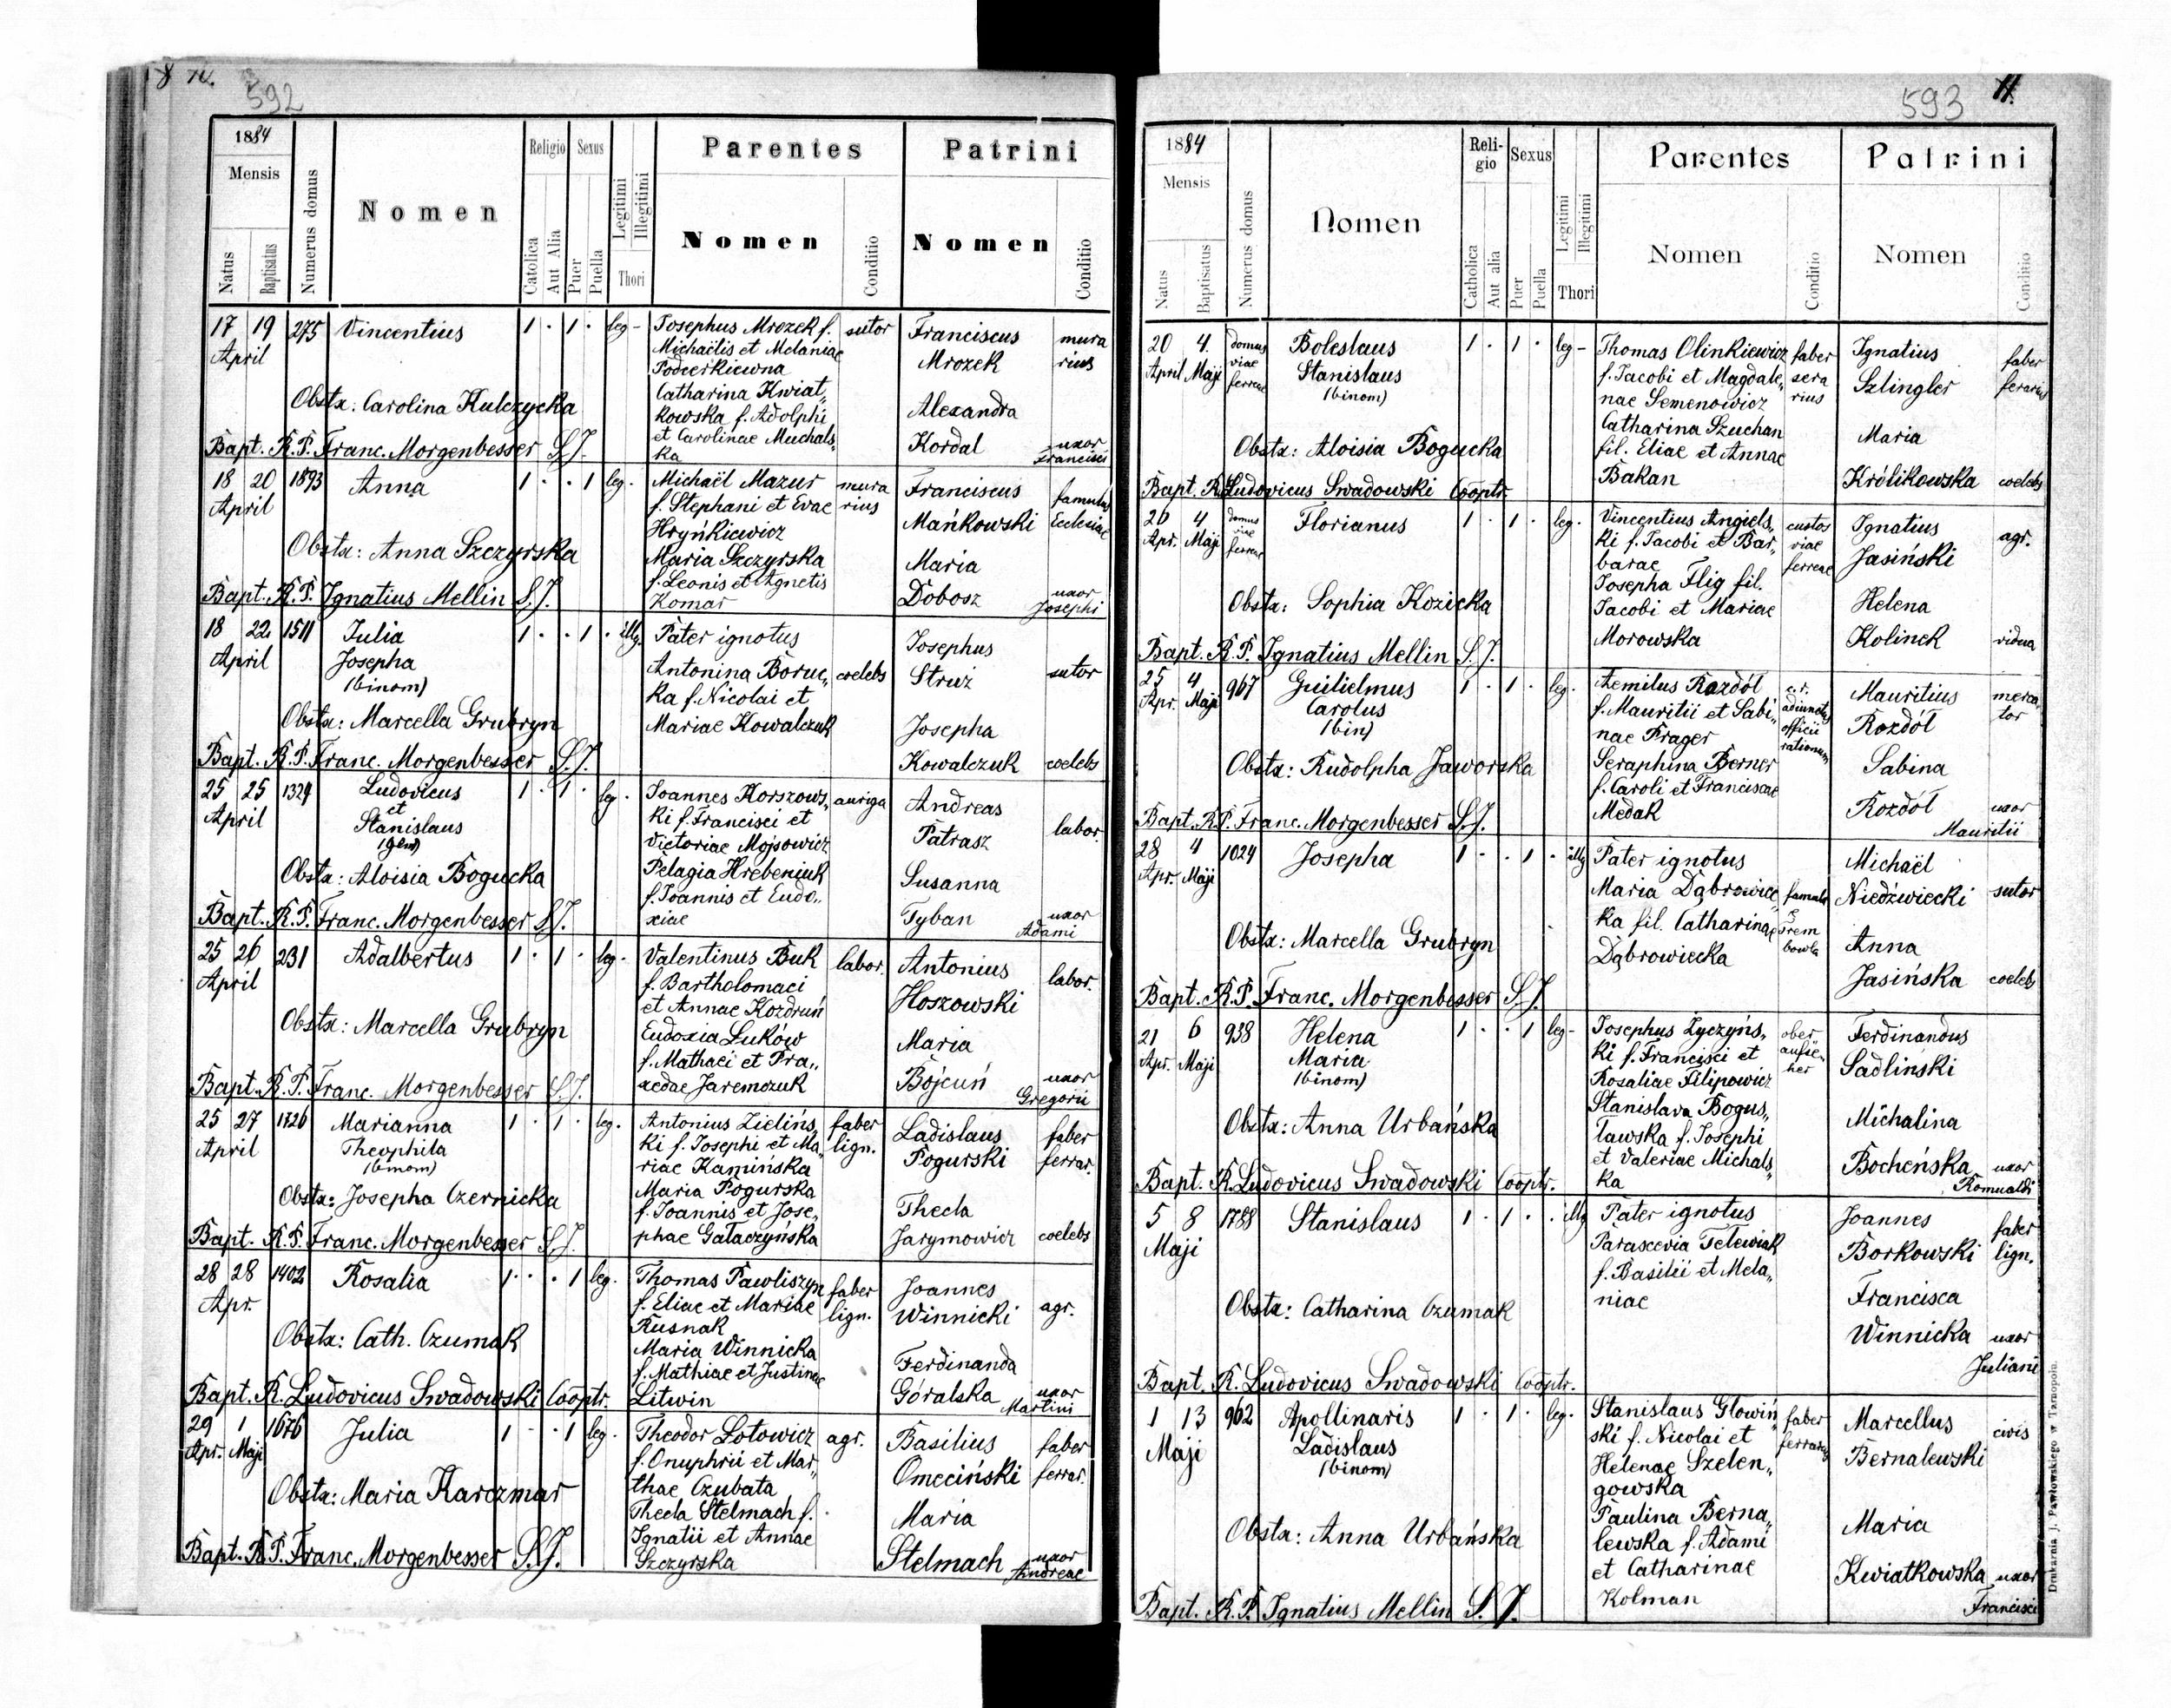 592
1884
Mensis
Natus
Baptisatus
Numerus domus
Nomen
Religio
Catolica
Aut Alia
Sexus
Puer
Puella
Legitimi
Illegitimi
Thori
Parentes
Nomen
Conditio
Patrini
Nomen
Conditio
17 19 275 Vincentius 1 · 1 · leg-
April
Obstx: Carolina Kulczycka
Bapt. R.P. Franc. Morgenbesser S.J.
Josephus Mrozek f. sutor
Michaëlis et Melaniae
Podcerkiewna
Catharina Kwiat„
kowska f. Adolphi
et Carolinae Muchals„
ka
Franciscus mura
Mrozek rius
Alexandra
Kordal uxor
Francisci
18 20 1893 Anna 1 · · 1 leg.
April
Obstx: Anna Szczyrska
Bapt. R.P. Ignatius Mellin S.J.
Michaël Mazur mura
f. Stephani et Evae rius
Hryńkiewicz
Maria Szczyrska
f. Leonis et Agnetis
Komar
Franciscus famulus
Mańkowski Ecclesiae
Maria
Dobosz uxor
Josephi
18 22 1511 Julia 1 · · 1 · illg.
April Josepha
(binom)
Obstx: Marcella Grubryn
Bapt. R.P. Franc. Morgenbesser S.J.
Pater ignotus
Antonina Boruc„ coelebs
ka f. Nicolai et
Mariae Kowalczuk
Josephus
Struż sutor
Josepha
Kowalczuk coelebs
25 25 1329 Ludovicus 1 · 1 · leg.
April et
Stanislaus
(gem)
Obstx: Aloisia Bogucka
Bapt. R.P. Franc. Morgenbesser S.J.
Joannes Korszows„ auriga
ki f. Francisci et
Victoriae Mojsowicz
Pelagia Hrebeniuk
f. Joannis et Eudo„
xiae
Andreas
Patrasz labor.
Susanna
Tyban uxor
Adami
25 26 231 Adalbertus 1 · 1 · leg.
April
Obstx: Marcella Grubryn
Bapt. R.P. Franc. Morgenbesser S.J.
Valentinus Buk labor.
f. Bartholomaei
et Annae Kozdruń
Eudoxia Luków
f. Mathaei et Pra„
xedae Jaremczuk
Antonius
Hoszowski labor.
Maria
Bójcuń uxor
Gregorii
25 27 1726 Marianna 1 · 1 · leg.
April Theophila
(binom)
Obstx: Josepha Czernicka
Bapt. R.P. Franc. Morgenbesser S.J.
Antonius Zielińs„ faber
ki f. Josephi et Ma„ lign.
riae Kamińska
Maria Pogurska
f. Joannis et Jose„
phae Gałaczyńska
Ladislaus faber
Pogurski ferrar.
Thecla
Jarymowicz coelebs
28 28 1402 Rosalia 1 · · 1 leg.
Apr.
Obstx: Cath. Czumak
Bapt. R. Ludovicus Swadowski Cooptr.
Thomas Pawliszyn faber
f. Eliae et Mariae lign.
Rusnak
Maria Winnicka
f. Mathiae et Justinae
Litwin
Joannes
Winnicki agr.
Ferdinanda
Góralska uxor
Martini
29 1 1676 Julia 1 · · 1 leg.
Apr. Maji
Obstx: Maria Karczmar
Bapt. R.P. Franc. Morgenbesser S.J.
Theodor Lotowicz agr.
f. Onuphrii et Mar„
thae Czubata
Thecla Stelmach f.
Ignatii et Annae
Szczyrska
Basilius faber
Omeciński ferrar.
Maria
Stelmach uxor
Andreae
593 11.
1884
Mensis
Natus
Baptisatus
Numerus domus
Nomen
Reli-
gio
Catholica
Aut alia
Sexus
Puer
Puella
Legitimi
Illegitimi
Thori
Parentes
Nomen
Conditio
Patrini
Nomen
Conditio
20 4. domus Boleslaus 1 · 1 · leg-
April Maji viae Stanislaus
ferreae (binom)
Obstx: Aloisia Bogucka
Bapt. R. Ludovicus Swadowski Cooptr.
Thomas Olinkiewicz faber
f. Jacobi et Magdale„ sera
nae Semenowicz rius
Catharina Szuchan
fil. Eliae et Annae
Bakan
Ignatius faber
Szlingler ferarius
Maria
Królikowska coelebs
20 4 domus Florianus 1 · 1 · leg.
Apr. Maji viae
ferreae
Obstx: Sophia Kozicka
Bapt. R.P. Ignatius Mellin S.J.
Vincentius Angiels„ custos
ki f. Jacobi et Bar„ viae
barae ferreae
Josepha Flig fil.
Jacobi et Mariae
Morowska
Ignatius agr.
Jasiński
Helena
Kolinek vidua
25 4 967 Guilielmus 1 · 1 · leg.
Apr. Maji Carolus
(bin)
Obstx: Rudolpha Jaworska
Bapt. R.P. Franc. Morgenbesser S.J.
Aemilus Rozdół c.r.
f. Mauritii et Sabi„ adiunctus
nae Prager officii
rationum
Seraphina Berner
f. Caroli et Franciscae
Medak
Mauritius merca„
Rozdół tor
Sabina
Rozdół uxor
Mauritii
28 4 1024 Josepha 1 · · 1 · illg
Apr. Maji
Obstx: Marcella Grubryn
Bapt. R.P. Franc. Morgenbesser S.J.
Pater ignotus
Maria Dąbrowiec„ famula
ka fil. Catharinae
Dąbrowiecka
Michaël
Niedźwiecki sutor
Anna
Jasińska coelebs
21 6 938 Helena 1 · · 1 leg-
Apr. Maji Maria
(binom)
Obstx: Anna Urbańska
Bapt. R. Ludovicus Swadowski Cooptr.
Josephus Życzyńs„ ober
ki f. Francisci et aufse„
Rosaliae Filipowicz her
Stanislava Bogus„
ławska f. Josephi
et Valeriae Michals„
ka
Ferdinandus
Sadliński
Michalina
Bocheńska uxor
Romualdi
5 8 1788 Stanislaus 1 · 1 · · illg
Maji
Obstx: Catharina Czumak
Bapt. R. Ludovicus Swadowski Cooptr.
Pater ignotus
Parascevia Telewiak
f. Basilii et Mela„
niae
Joannes faber
Borkowski lign.
Francisca
Winnicka uxor
Juliani
1 13 962 Apollinaris 1 · 1 · leg.
Maji Ladislaus
(binom)
Obstx: Anna Urbańska
Bapt. R.P. Ignatius Mellin S.J.
Stanislaus Głowiń faber
ski f. Nicolai et ferrarius
Helenae Szelen„
gowska
Paulina Berna„
lewska f. Adami
et Catharinae
Kolman
Marcellus civis
Bernalewski
Maria
Kwiatkowska uxor
Francisci
Drukarnia J. Pawłowskiego w Tarnopolu.